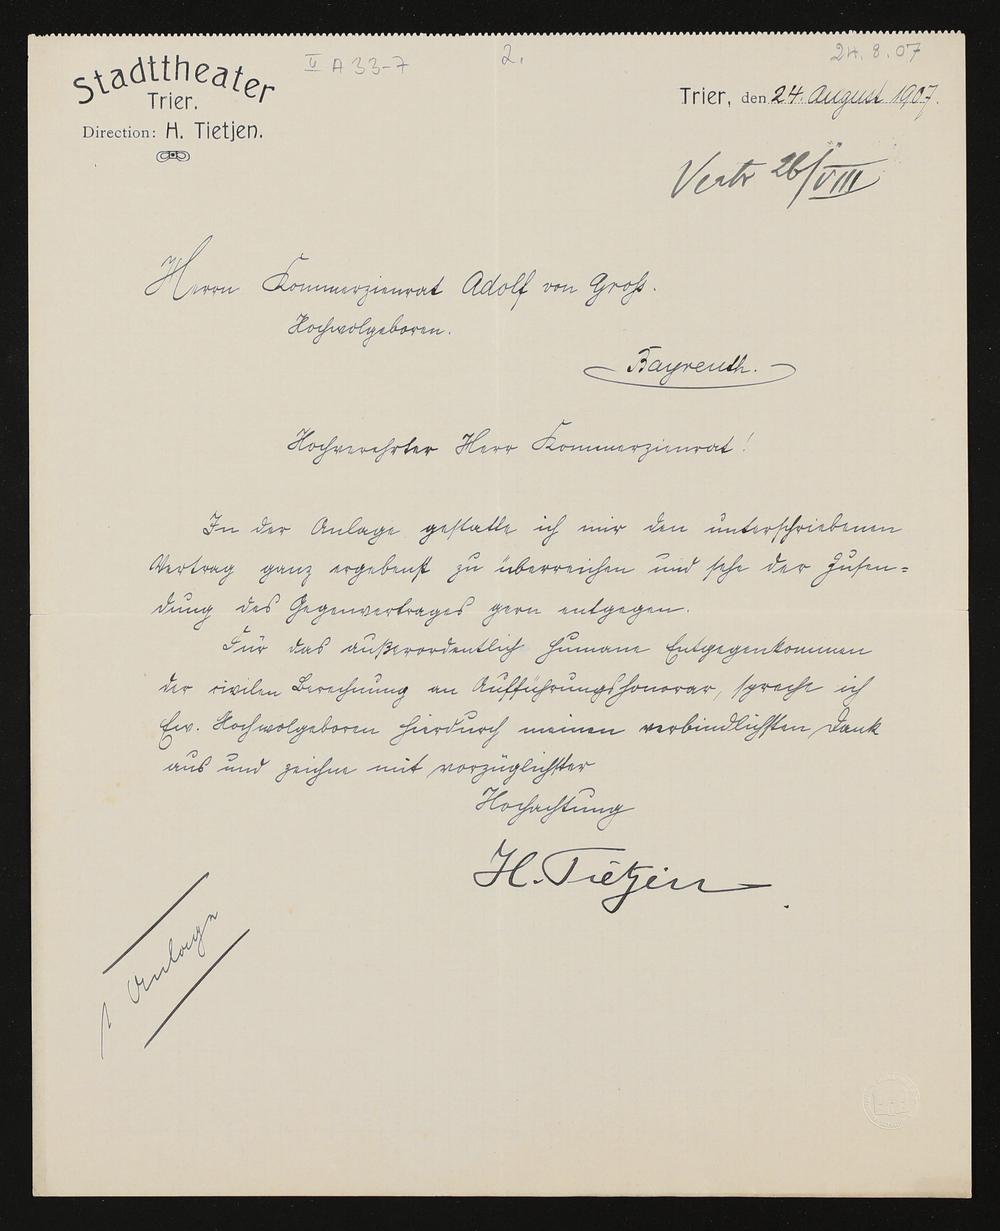 V A 33-7
2.
24.8.07
Stadttheater
Trier.
Direction: H. Tietjen.
Trier, den 24. August 1907.
26/VIII
Herrn Kommerzienrat Adolf von Groß.
Hochwolgeboren.
Bayreuth.
Hochverehrter Herr Kommerzienrat!
In der Anlage gestatte ich mir den unterschriebenen
Vertrag ganz ergebenst zu überreichen und sehe der Zusen=
dung des Gegenvertrages gern entgegen.
Für das außerordentlich humane Entgegenkommen
der civilen Berechnung an Aufführungshonorar, spreche ich
Ew. Hochwolgeboren hierdurch meinen verbindlichsten Dank
aus und zeichne mit vorzüglichster
Hochachtung
H. Tietjen
1 Anlage